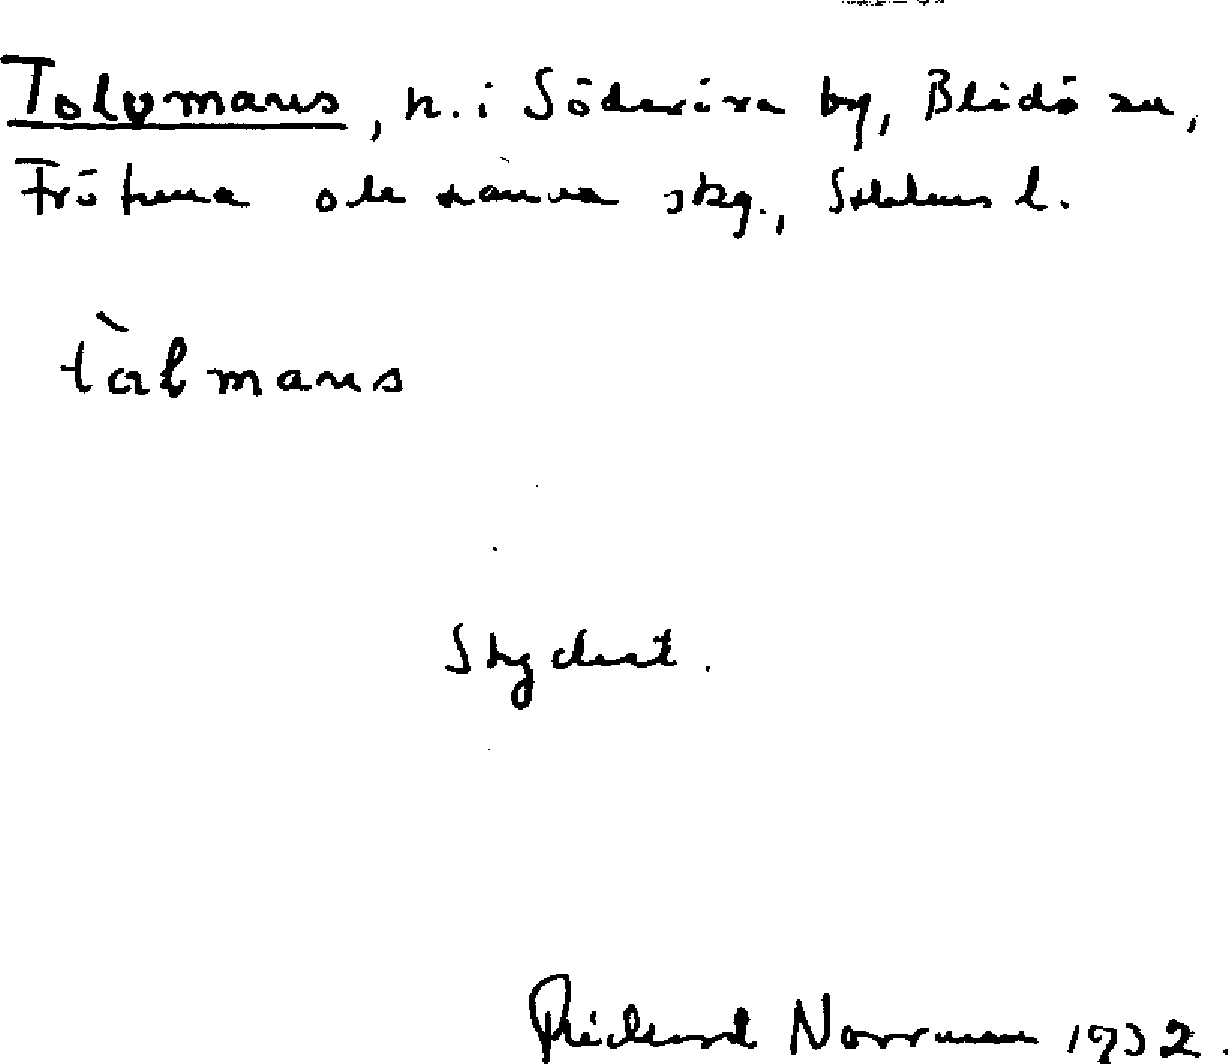 Tolvmans, h. i Söderöra by, Blidö sn,
Frötuna och Länna skg., Sthlms l.
tàlmans
Skgdial.
Richard Norrman 1932.